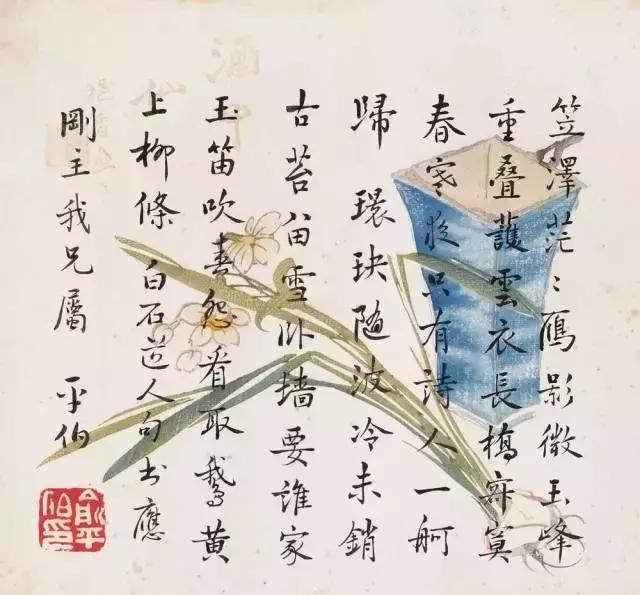 笠澤茫〻鴈影微玉峰
重叠護雲衣長橋寂寞
春寒夜只有詩人一舸
歸 環玦随波冷未銷
古苔留雪卧墙要誰家
玉笛吹春怨看取鵞黄
上柳條 白石道人句书應
剛主我兄屬 平伯
俞平伯印
酒中仙